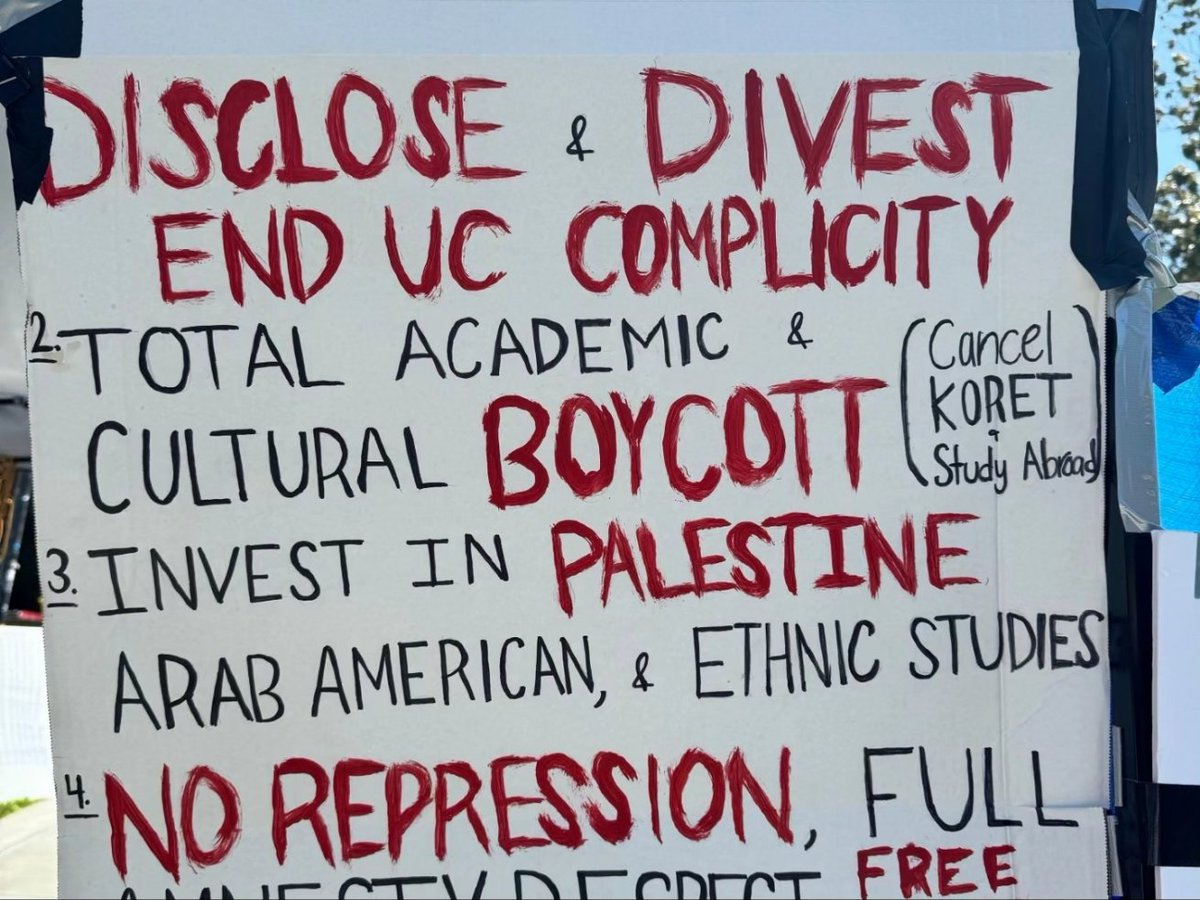 DISCLOSE & DIVEST
END UC COMPLICITY
2. TOTAL ACADEMIC &
CULTURAL BOYCOTT
(Cancel
KORET
&
Study Abroad)
3. INVEST IN PALESTINE
ARAB AMERICAN, & ETHNIC STUDIES
4. NO REPRESSION, FULL
AMNESTY RESPECT FREE